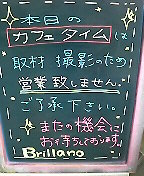 本日の
カフェタイムは
取材撮影のため
営業致しません。
ご了承下さい。
またの機会に
お待ちしております。
Brillano